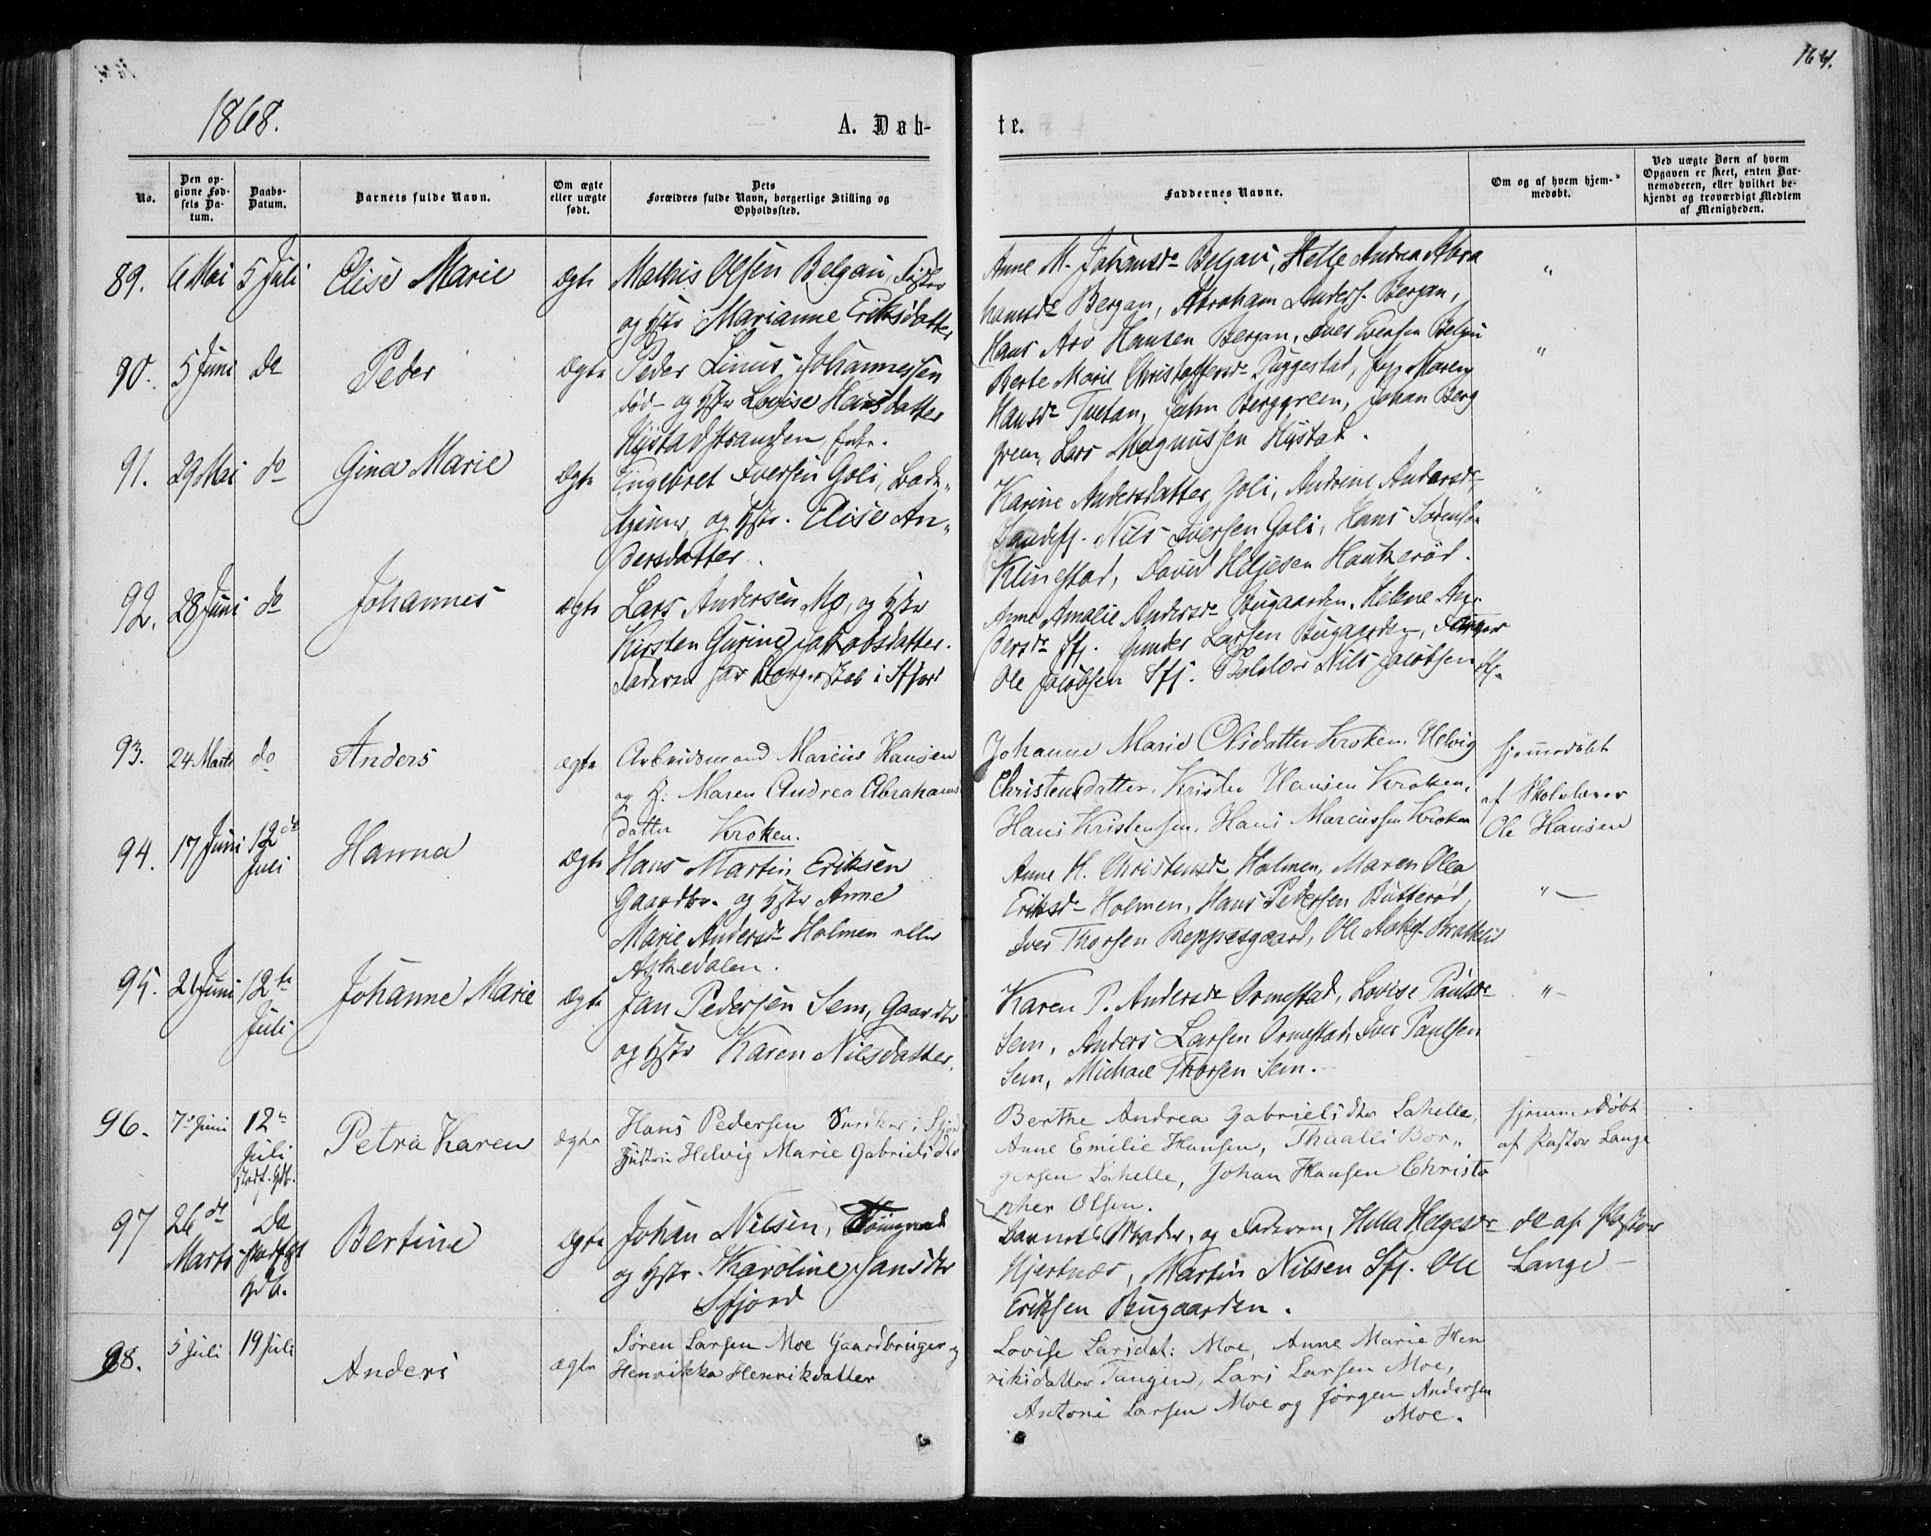 164.
1868.
A. Døb-
te.
No.
Den op-
givne Fød-
sels Da-
tum.
Daabs-
Datum.
Barnets fulde Navn.
Om ægte
eller uægte
født.
Dets
Forældres fulde Navn, borgerlige Stilling og
Opholdssted.
Faddernes Navne.
Om og af hvem hjem-
medøbt.
Ved uægte Børn af hvem
Opgaven er skeet, enten Bar-
nemoderen, eller hvilket be-
kjendt og troværdigt Medlem
af Menigheden.
89. 6 Mai 5 Juli Elise Marie ægte Mathis Olsen Bergan,
og Hstr Marianne Eriksdatter
Anne M. Johansdr Bergan, Helle Andrea Abra "
hamsdr Bergan, Abraham Anders. Bergan,
Hans Arv Hansen Bergan, Iver Bergan
90. 5 Juni do Peder ægte Peder Linus Johannessen
Fød- og Hstr Lovise Hansdatter
Hystadstranden
Berte Marie Christoffersdr Puggestad, Jfr. Maren "
Hansdr Tvetan, John Berggreen, Johan Berg
green, Lars Magnussen Hystad.
91. 29 Mai do Gina Marie ægte Engebret Iversen Goli,
og Hstr. Elise An-
dersdatter.
Karine Andersdatter Goli, Andrine Andersdr "
Sandefj. Nils Iversen Goli, Hans Sørensen
Klinestad, David Helgesen Haukerød.
92. 28 Juni do Johannes ægte Lars Andersen Mo, og Hstr
Kirsten Gurine Jakobsdatter.
Faderen har Borgerskab i Sfjord
Anne Amalie Andersdr Bugaarden, Helene An-
dersdr Sfj. Gunder Larsen Bugaarden,
Ole Jakobsen Sfj. Nils Jakobsen Sfj.
93. 24 Marts do Anders ægte Arbeidsmand Marcus Hansen
og H: Maren Andrea Abrahams
datter Kroken.
Johanne Marie Olsdatter Kroken, Helvig hjemmedøbt
Christensdatter, Krister Hansen Kroken, af Skolelærer
Hans Kristensen, Hans Marcussen Kroken Ole Hansen
94. 17 Juni 12te Juli Hanna ægte Hans Martin Eriksen
Gaardbr. og Hstr Anne
Marie Andersdr Holmen eller
Askedalen.
Anne H. Christensdr Holmen, Maren Olea
Eriksdr Holmen, Hans Pedersen Butterød, "
Iver Thorsen Reppesgaard, Ole
95. 21 Juni 12te Juli Johanne Marie ægte Jan Pedersen Sem, Gaardbr
og Hstr Karen Nilsdatter.
Karen P. Andersdr Ormestad, Lovise Paulsdr "
Sem, Anders Larsen Ormestad, Iver Paulsen
Sem, Michael Thorsen Sem.
96. 7de Juni 12te Juli Petra Karen ægte Hans Pedersen
Hustru Helvig Marie Gabrielsdtr
Berthe Andrea Gabrielsdtr Lahelle, hjemmedøbt
Anne Emilie Hansen, Thaalli Bor- af Pastor Lange
gersen Lahelle, Johan Hansen Christo
pher Olsen.
97 26de Marts Do Bertine ægte Johan Nilsen, Tømmermd
og Hstr. Karoline Jansdtr
Sfjord
Barnets Moder, og Faderen, Helgesdr do af Pastor
Hjertnæs, Martin Nilsen Sfj. Ole Lange
Eriksen Bugaarden.
98. 5 Juli 19 Juli Anders ægte Søren Larsen Moe Gaardbruger og
Henrikka Henrikdatter
Lovise Larsdat: Moe, Anne Marie Hen
riksdatter Tangen, Lars Larsen Moe,
Antoni Larsen Moe og Jørgen Andersen
Moe.